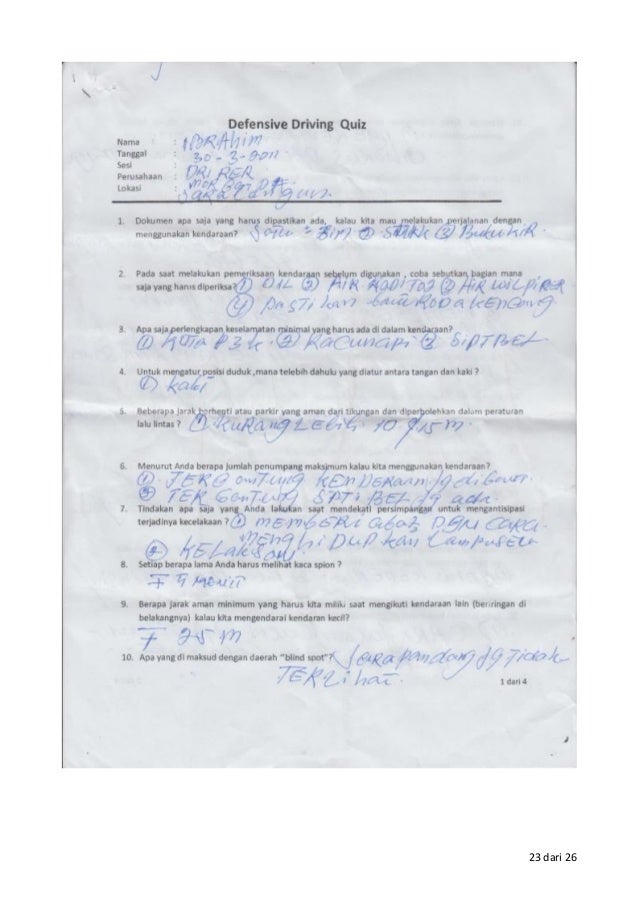 Defensive Driving Quiz
Nama : IBRAHim
Tanggal : 30-3-2011
Sesi :
Perusahaan : DRIPER
Lokasi :
1. Dokumen apa saja yang harus dipastikan ada, kalau kita mau melakukan perjalanan dengan
menggunakan kendaraan? Satu = Sim ② STNK ③ Buku KiR.
2. Pada saat melakukan pemeriksaan kendaraan sebelum digunakan , coba sebutkan bagian mana
saja yang harus diperiksa? ① OIL ② AIR RADITOJ ③ AiR WILPIPER
④ PASTi kan RODA KENCONG
3. Apa saja perlengkapan keselamatan minimal yang harus ada di dalam kendaraan?
① KOTA P3k ② RACUNAPi ③ SiPTBEL
4. Untuk mengatur posisi duduk ,mana telebih dahulu yang diatur antara tangan dan kaki ?
① kaki
5. Beberapa jarak berhenti atau parkir yang aman dari tikungan dan diperbolehkan dalam peraturan
lalu lintas ? ① KURANG LEbih 10 15 m.
6. Menurut Anda berapa jumlah penumpang maksimum kalau kita menggunakan kendaraan?
① KENDERAAN yg di
② TER GANTUNG SPTi BEL yg ada.
7. Tindakan apa saja yang Anda lakukan saat mendekati persimpangan untuk mengantisipasi
terjadinya kecelakaan ? ① MEMBERi DGN CARA
MENGHiDUPkan Lampu
② KELAKSON
8. Setiap berapa lama Anda harus melihat kaca spion ?
5 MENIT
9. Berapa jarak aman minimum yang harus kita miliki saat mengikuti kendaraan lain (beriringan di
belakangnya) kalau kita mengendarai kendaran kecil?
25 M
10. Apa yang di maksud dengan daerah "blind spot"? pandang yg Tidak
TERLihat.
1 dari 4
23 dari 26